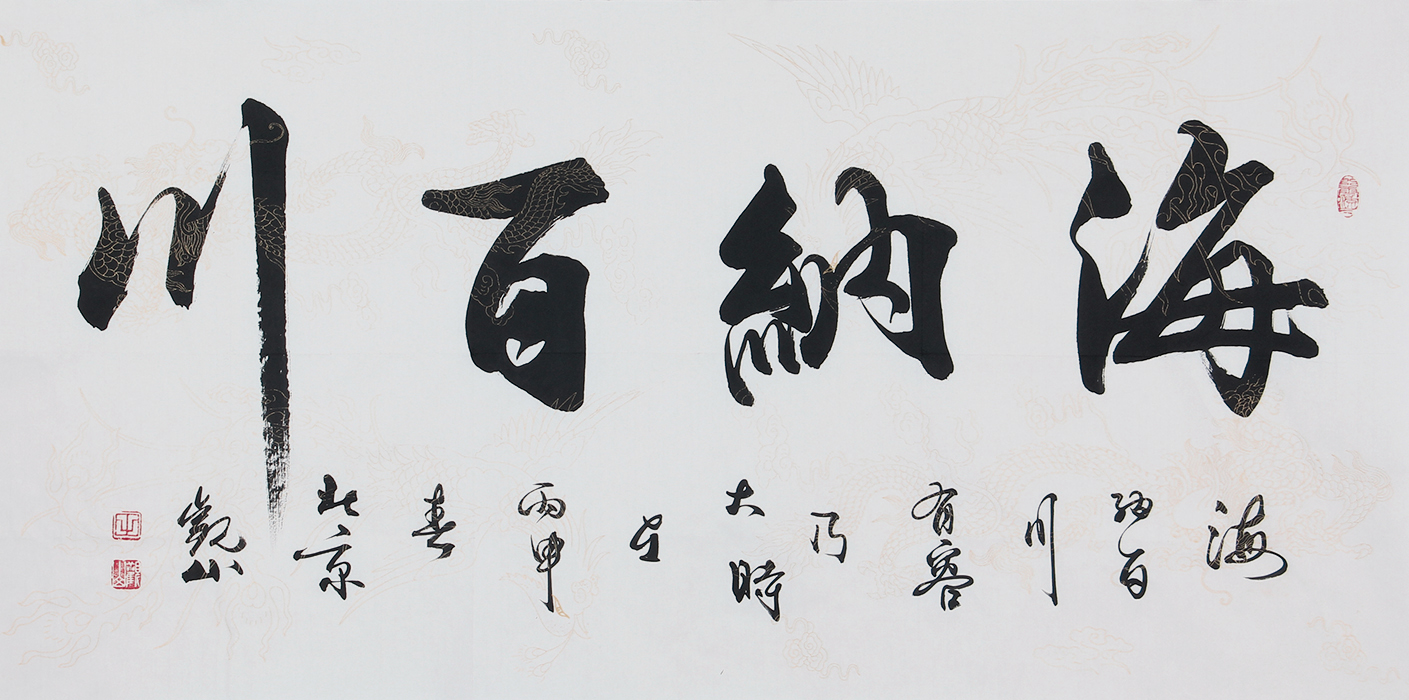 海納百川
海納百川有容乃大時在丙申春北京觀山